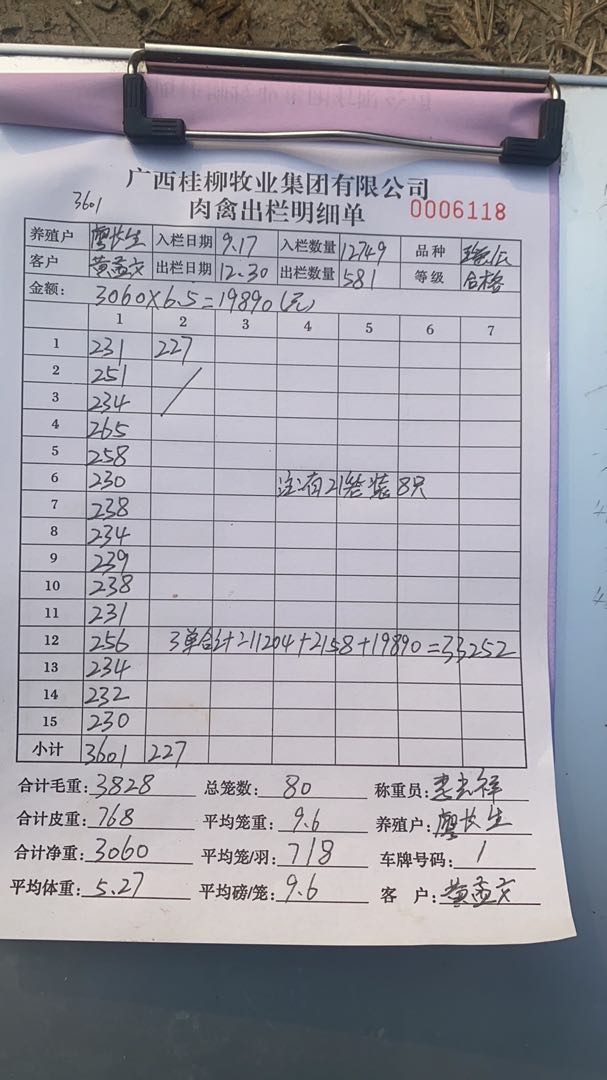 广西桂柳牧业集团有限公司
3601
肉禽出栏明细单 0006118
养殖户 廖长生 入栏日期 9.17 入栏数量 12749 品种
客户 黄孟文 出栏日期 12.30 出栏数量 581 等级 合格
金额: 3060×6.5=19890(元)
1 2 3 4 5 6 7
1 231 227
2 251
3 234
4 265
5 258
6 230 注:有21笼装8只
7 238
8 234
9 239
10 238
11 231
12 256 3单合计=11204+2158+19890=33252
13 234
14 232
15 230
小计 3601 227
合计毛重: 3828 总笼数: 80 称重员:
合计皮重: 768 平均笼重: 9.6 养殖户: 廖长生
合计净重: 3060 平均笼/羽: 718 车牌号码: 1
平均体重: 5.27 平均磅/笼: 9.6 客 户: 黄孟文